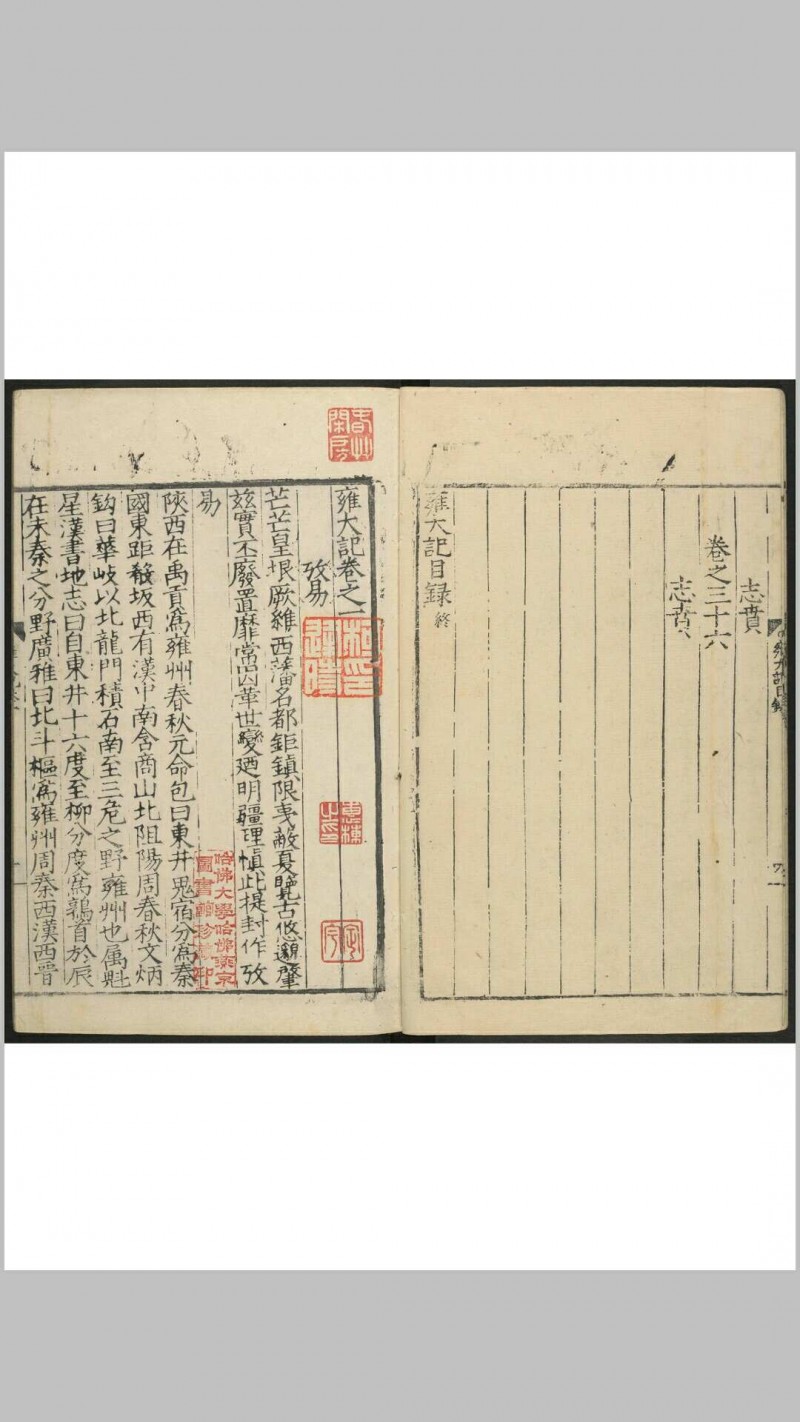 志賁
卷之三十六
志賁
雍大記目録終
雍大記卷之一
攷易
芒芒皇垠厥維西藩名都鉅鎮限夷蔽夏曉古悠邈肇
兹實丕廢置靡常因革世變廼明疆理慎此提封作攷
易
陝西在禹貢為雍州春秋元命包曰東井鬼宿分為秦
國東距殽坂西有漢中南含商山北阻陽周春秋文炳
鈎曰華岐以北龍門積石南至三危之野雍州也属魁
星漢書地志曰自東井十六度至柳分度為鶉首於辰
在未秦之分野廣雅曰北斗樞為雍州周秦西漢西晉
惠棟之印
定宇
哈佛大學哈佛燕京圖書館珍藏印